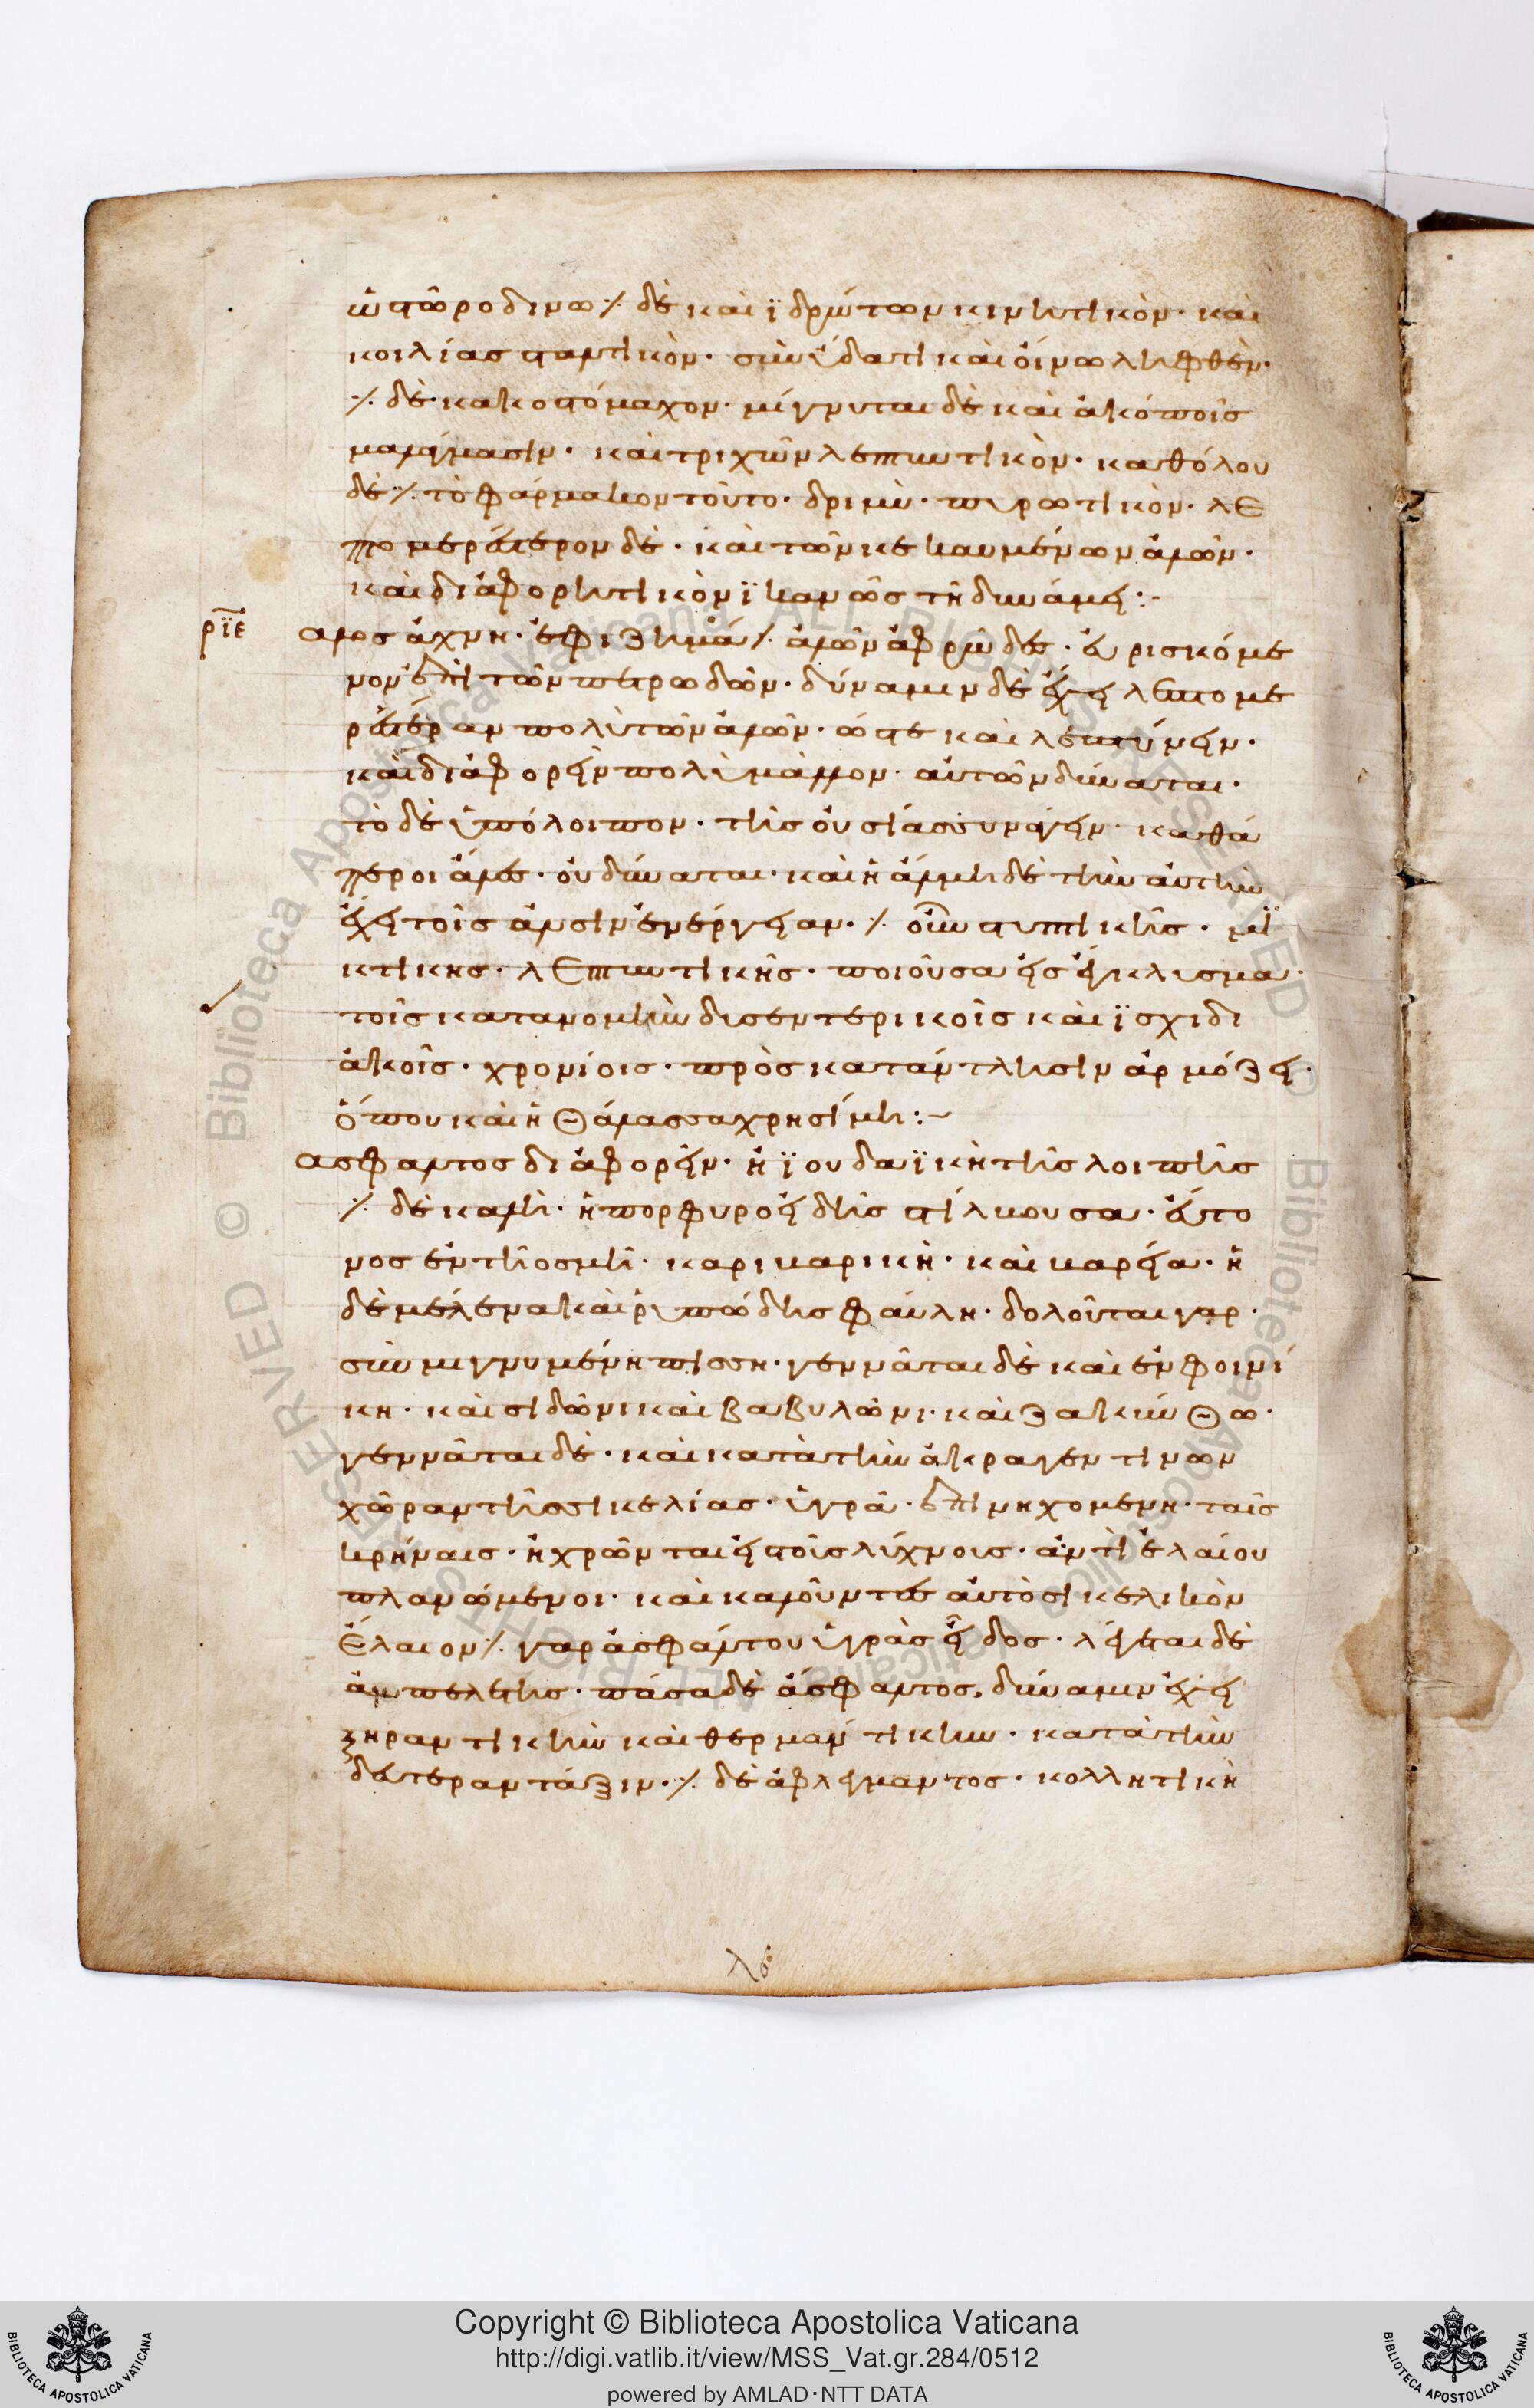 ἢ ῥοδίνω ⁒ δὲ καὶ ϊδρώτων κινητικὸν· καὶ
κοιλίας σταλτικὸν· σὺν ὕδατι καὶ οἴνω ληφθὲν·
⁒ δὲ κακοστόμαχον· μίγνυται δὲ καὶ ἀκόποις
μαλάγμασιν· καὶ τριχῶν λεπτυντικὸν· καθόλου
δὲ ⁒ τὸ φάρμακον τοῦτο· δριμὺ· πυρωτικὸν· λε
πτομερέστερον δὲ· καὶ τῶν κεκαυμένων ἁλῶν·
καὶ διαφορητικὸν ϊκανῶς τῆ δυνάμει :-
ρϊε
αλοσάχνη· ἐφίζημά ⁒ ἁλῶν ἀφρῶδες· εὑρισκόμε
νον ἐπὶ τῶν πετρωδῶν· δύναμιν δὲ ἔχει λεπτομε
ρεστέραν πολὺ τῶν ἁλῶν· ὥστε καὶ λεπτύνειν·
καὶ διαφορεῖν πολὺ μᾶλλον αὐτῶν δύναται·
τὸ δὲ ὑπόλοιπον· τῆς οὐσίας συνάγειν· καθά
περ οἱ ἅλες· οὐ δύναται· καὶ ἡ ἅλμη δὲ τὴν αὐτὴν
ἔχει τοῖς ἁλσὶν ἐνέργειαν· ⁒ οὖν στυπτικῆς·
κτικης· λεπτυντικῆς· ποιοῦσα εἰς ἔγκλυσμα·
τοῖς κατανομὴν δυσεντερικοῖς καὶ ϊσχιδι
ακοῖς· χρονίοις· πρὸς κατάντλησιν ἁρμόζει·
ὅπου καὶ ἡ θάλασσα χρησίμη :-
ασφαλτος διαφορεῖν· ἡ ϊουδαϊκὴ τῆς λοιπῆς
⁒ δὲ καλὴ· ἡ πορφυροειδὴς στίλβουσα· εὔτο
νος ἐν τῆ ὀσμῆ· καὶ βαρεῖα· ἡ
δὲ μέλενα καὶ ῥυπώδης φαύλη· δολοῦται γαρ·
σὺν μιγνυμένη πίσση· γεννᾶται δὲ καὶ ἐν φοινί
κη· καὶ σιδῶνι καὶ βαβυλῶνι· καὶ ζακύνθω·
γεννᾶται δὲ· καὶ κατὰ τὴν ἀκραγεντίνων
χῶραν τῆς σικελίας· ὑγρὰ· ἐπινηχομενη· ταῖς
κρήναις· ἡ χρῶνται εἰς τοῖς λύχνοις· ἀντὶ ἐλαίου
πλανώμενοι· καὶ καλοῦντες αὐτὸ σικελικὸν
ἔλαιον ⁒ γαρ ἀσφάλτου ὑγρᾶς εἶδος· λέγεται δὲ
ἀμπελῖτις· πᾶσα δὲ ἄσφαλτος, δύναμιν ἔχει
ξηραντικὴν καὶ θερμαντικὴν· κατὰ τὴν
δευτεραν τάξιν· ⁒ δὲ ἀφλέγμαντος· κολλητικὴ